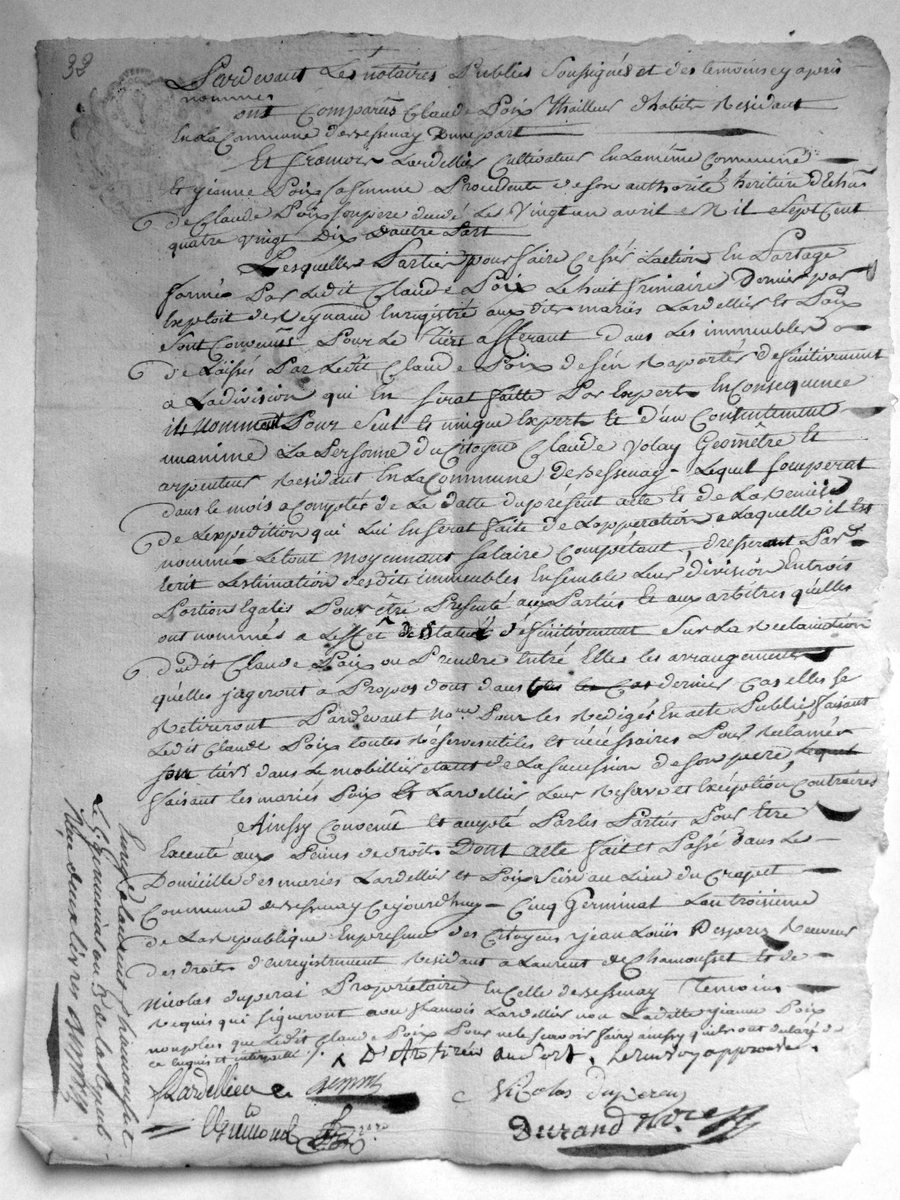 33
Pardevant Les notaires Publics Soussignés et des temoins cy apres
nommes
ont Comparus Claude Poix thailleur d'habits Residant
En La Commune de Bessenay D'une part
Et françois Lardellier Cultivateur En la meme Commune
Et jeanne Poix sa femme Procedente de son authorité heritiere
de Claude Poix son pere du Les Vingt un avril Mil Sept Cent
quatre Vingt Dix D'autre Part
Lesquelles Parties pour faire Cesser L'action En Partage
formée Par Ledit Claude Poix Le huit frimaire Dernier par
Exploit de Reynard Enregistré aux dits mariés Lardellier Et Poix
Sont Convenus Pour Le tiers afferant Dans Les immeubles
De Laissés Par Ledit Claude Poix de s'en Raporter définitivement
a La division qui En serat faitte Par Expert En Consequence
ils nomment Pour Seul et unique Expert Et d'un Consentement
unanime La Personne du Citoyen Claude Volay Geomètre Et
arpenteur Residant En La Commune de Bessenay Lequel
dans le mois a Compter de La datte du present acte Et de La Remise
de L'expedition qui Lui En serat faite de L'opperation a Laquelle il Est
nommé Le tout moyennant salaire Compétant dresserat Par
Ecrit L'estimation desdits immeubles Ensemble Leur division En trois
Portions Egales Pour être Presenté aux Parties Et aux arbitres qu'elles
ont nommés a L'effet de Statuer définitivement Sur La Reclamation
Dudit Claude Poix ou Prendre Entré Elles les arrangements
qu'elles jugeront a Propos dont dans ce dernier Cas elles se
Retireront Pardevant Pour les Rediger En acte Public faisant
Ledit Claude Poix toutes Reserves utiles et nécessaires Pour Reclamér
son tiers dans Le mobillier de La succession de son pere
faisant les mariés Poix Et Lardellier Leur Reserve et Exéption Contraires
Ainssy Convenu Et accepté Par les Parties Pour Etre
Executé aux Peines de droit. Dont acte fait et Passé dans Le
Domicille des mariés Lardellier et Poix Seize au Lieu du Crapet
Commune de Bessenay Cejourdhuy Cinq Germinal L'an troisieme
De La Republique En presence des Citoyens jean Louis Desporez Receveur
des droits d'enregistrement Residant a Laurent de Chamousset Et de
Nicolas duperai Propriétaire En Celle de Bessenay Temoins
Requis qui Signeront avec françois Lardellier non Ladite jeanne Poix
non plus que Ledit Claude Poix Pour ne le scavoir faire ainssy qu'ils ont declaré de
ce Enquis et interpellés
Le Renvoy approuvé
Lardellier
Nicolas duperai
Durand Nore
Enregé à Laurent Chamousset
Le 5 Germinal an 3 de la Repub
Reçu deux livres